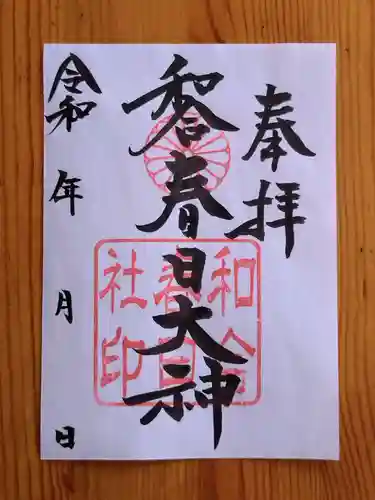 奉拝
春日大神
令和 年 月 日
和
春日
社印